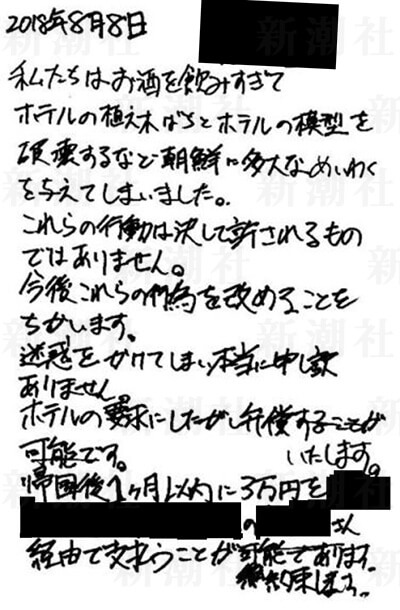 2018年8月8日
私たちはお酒を飲みすぎて
ホテルの植木ばちとホテルの模型を
破壊するなど朝鮮に多大なめいわく
を与えてしまいました。
これらの行動は決して許されるもの
ではありません。
今後これらの行為を改めることを
ちかいます。
迷惑をかけてしまい本当に申し訳
ありません。
ホテルの要求にしたがい弁償することが
可能です。 いたします。
帰国後1ヶ月以内に3万円を
の さん
経由で支払うことが可能であります。
約束します。
新潮社